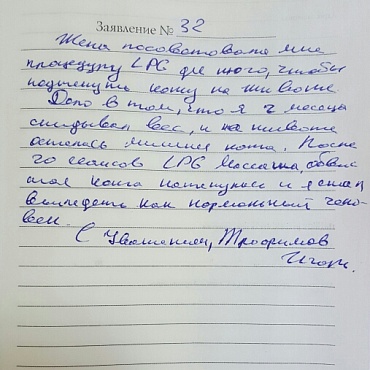 Заявление № 32
Жена посоветовала мне
процедуру LPG для того, чтобы
подтянуть кожу на животе.
Дело в том, что я 2 месяца
скидывал вес, и на животе
осталась лишняя кожа. После
20 сеансов LPG массажа, обвис
шая кожа подтянулась и я стал
выглядеть как нормальный чело
век.
С Уважением, Трофимов
Игорь.